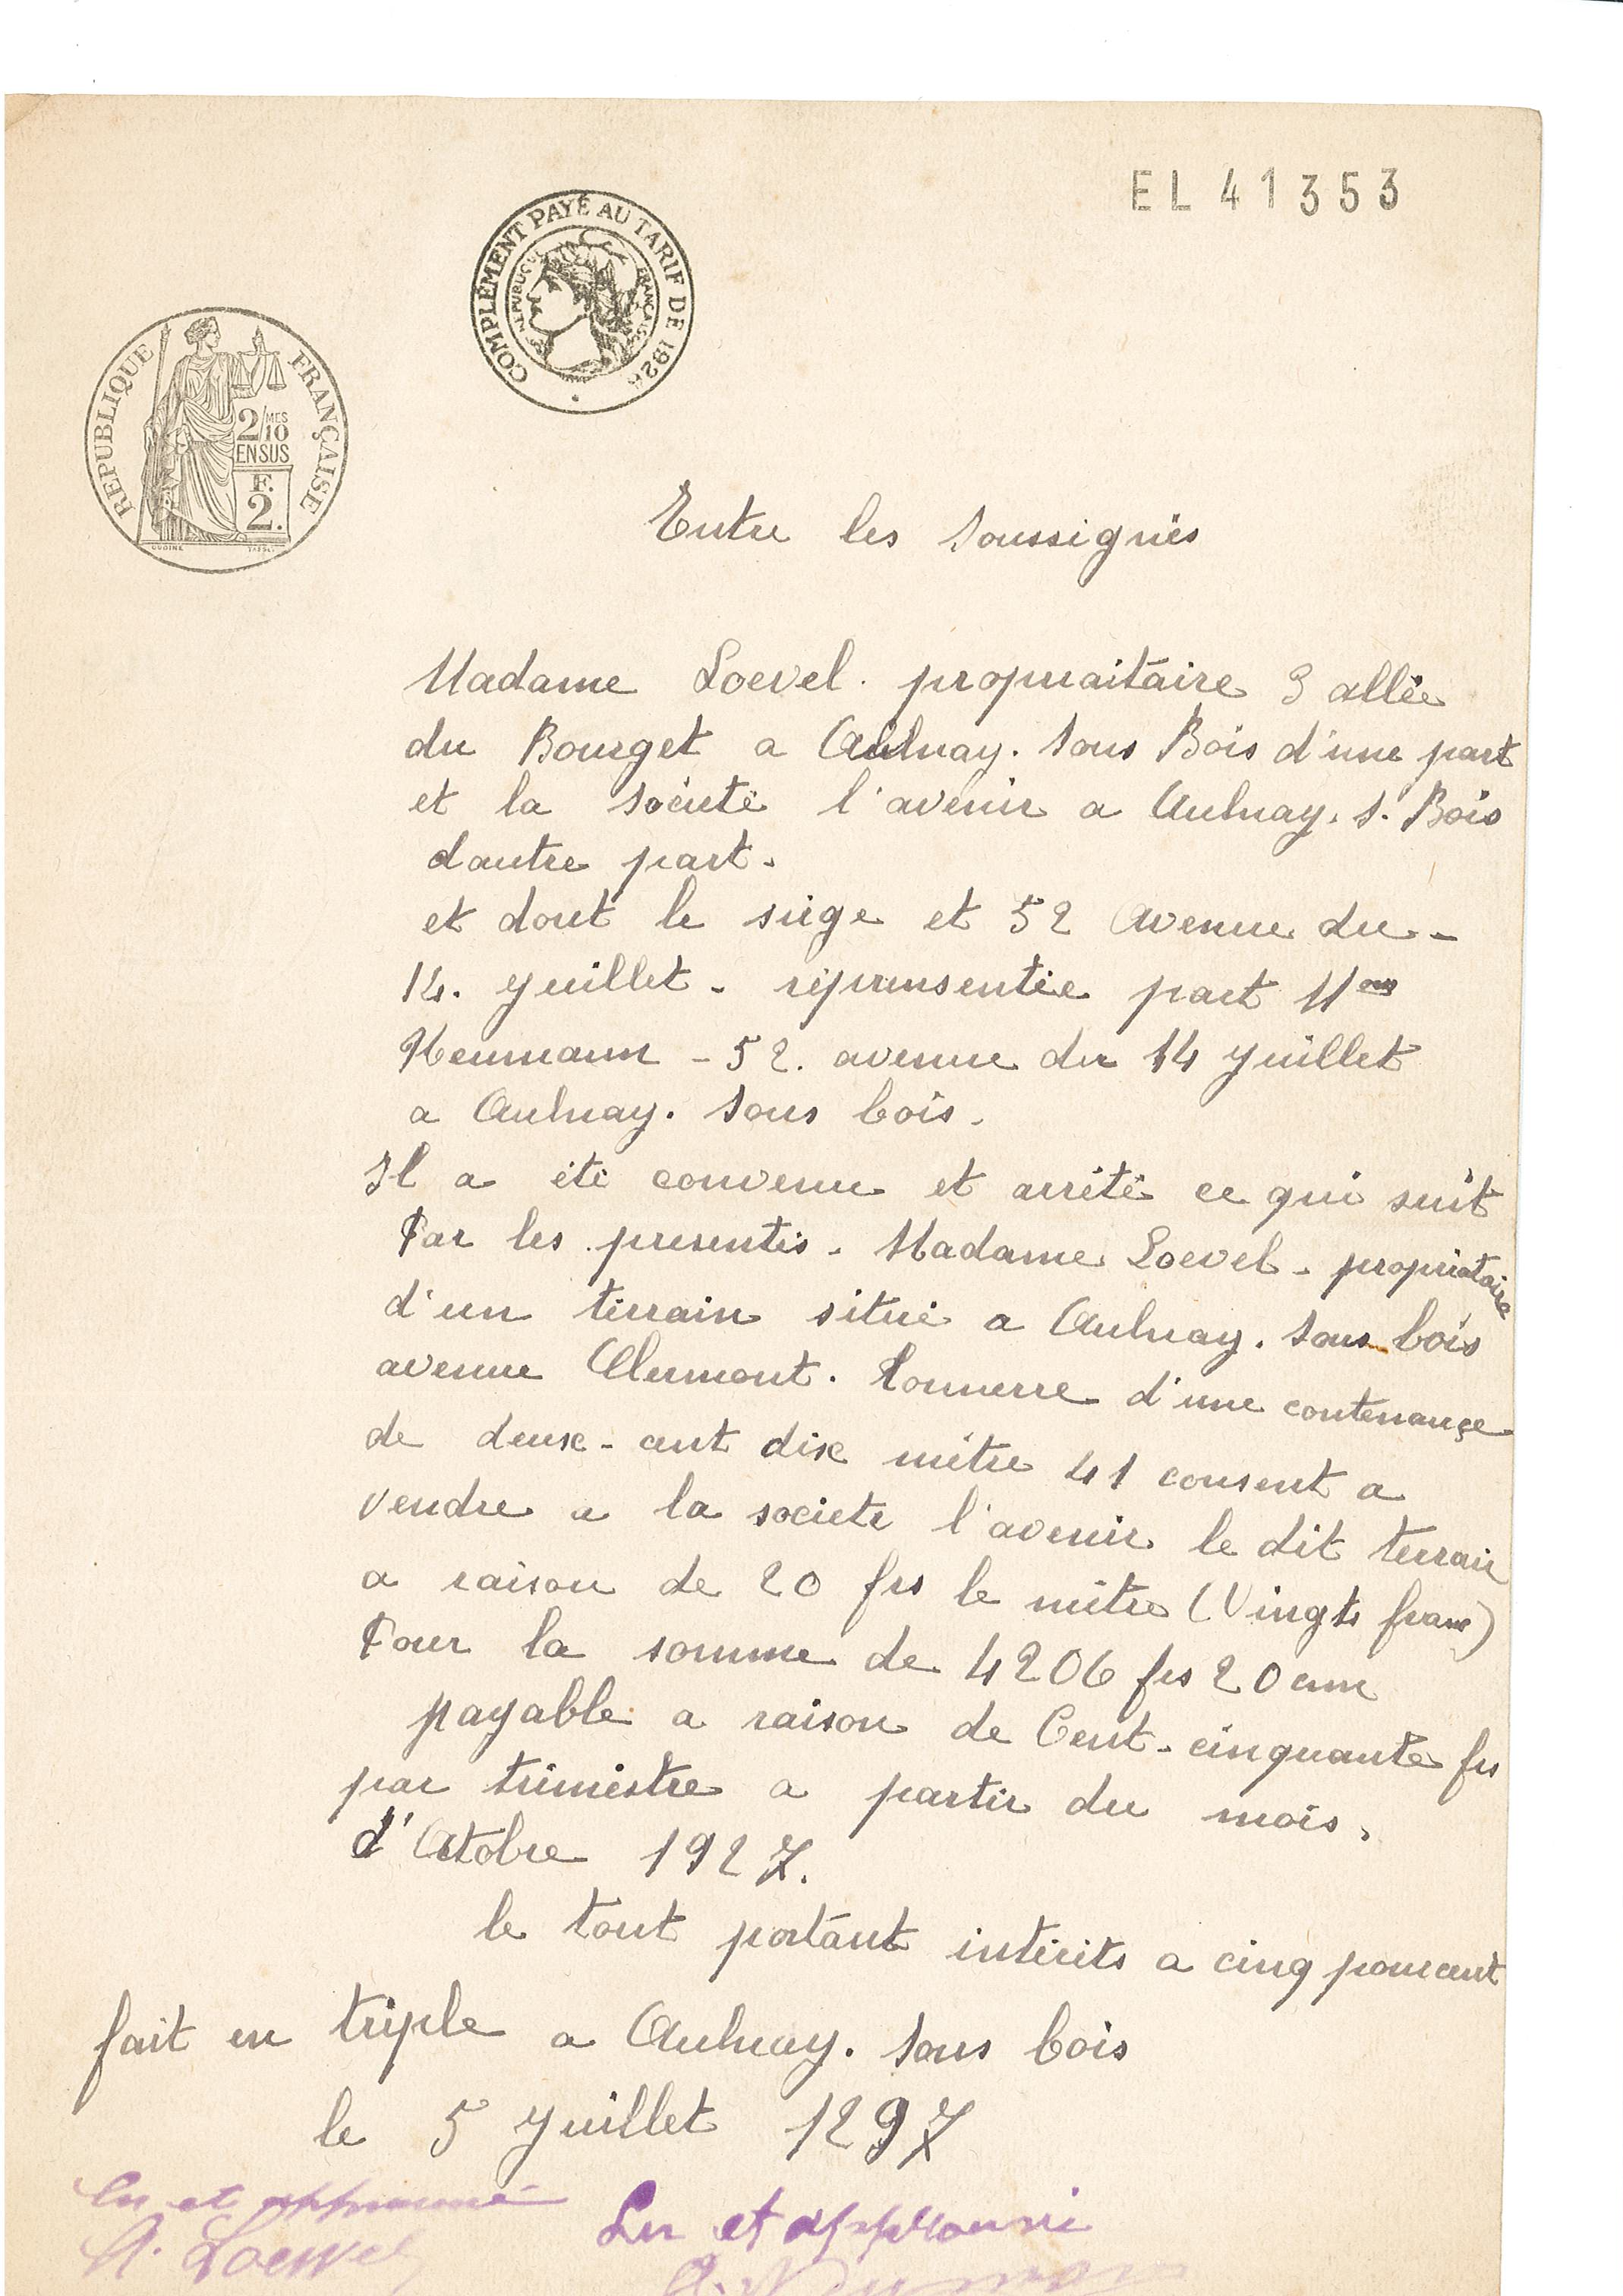 EL 41353
COMPLÉMENT PAYÉ AU TARIF DE 1926
REPUBLIQUE FRANÇAISE
REPUBLIQUE FRANÇAISE
2/10 MES
EN SUS
F.
2.
Entre les soussignés
Madame Loevel. propriaitaire 3 allée
du Bourget a Aulnay. sous Bois d'une part
et la société l'avenir a Aulnay. s. Bois
dautre part.
et dont le siège et 52 Avenue du -
14. Juillet - réprensentée part Mons
Neumann - 52. avenue du 14 Juillet
a Aulnay. sous bois.
Il a été convenu et arrêté ce qui suit
Par les presentes - Madame Loevel - propriataire
d'un terrain situé a Aulnay. sous bois
avenue Clermont. Tonnerre d'une contenançe
de deux - cent dix mètre 41 consent a
vendre a la societe l'avenir le dit terrain
a raison de 20 frs le mètre (Vingts franc)
Pour la somme de 4206 frs 20 cme
payable a raison de Cent - cinquante frs
par trimestre a partir du mois.
d'Octobre 1927.
le tout portant intérêts a cinq pourcent
fait en triple a Aulnay. sous bois
le 5 Juillet 1297
Lu et approuvé
Lu et approuvé
A. Loewel